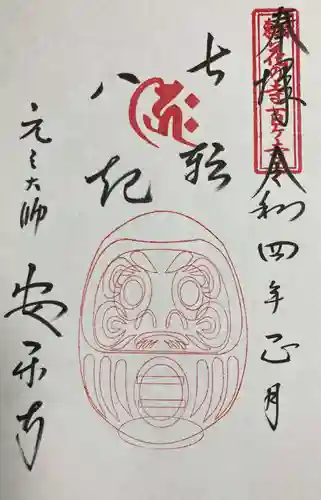 奉拝
令和四年正月
七転
八起
元三大師
安楽寺